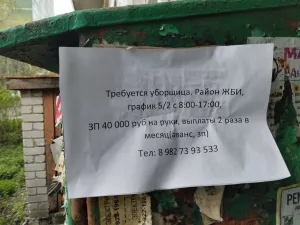 Требуется уборщица. Район ЖБИ,
график 5/2 с 8:00-17:00,
ЗП 40 000 руб на руки, выплаты 2 раза в
месяц(аванс, зп)
Тел: 8 982 73 93 533